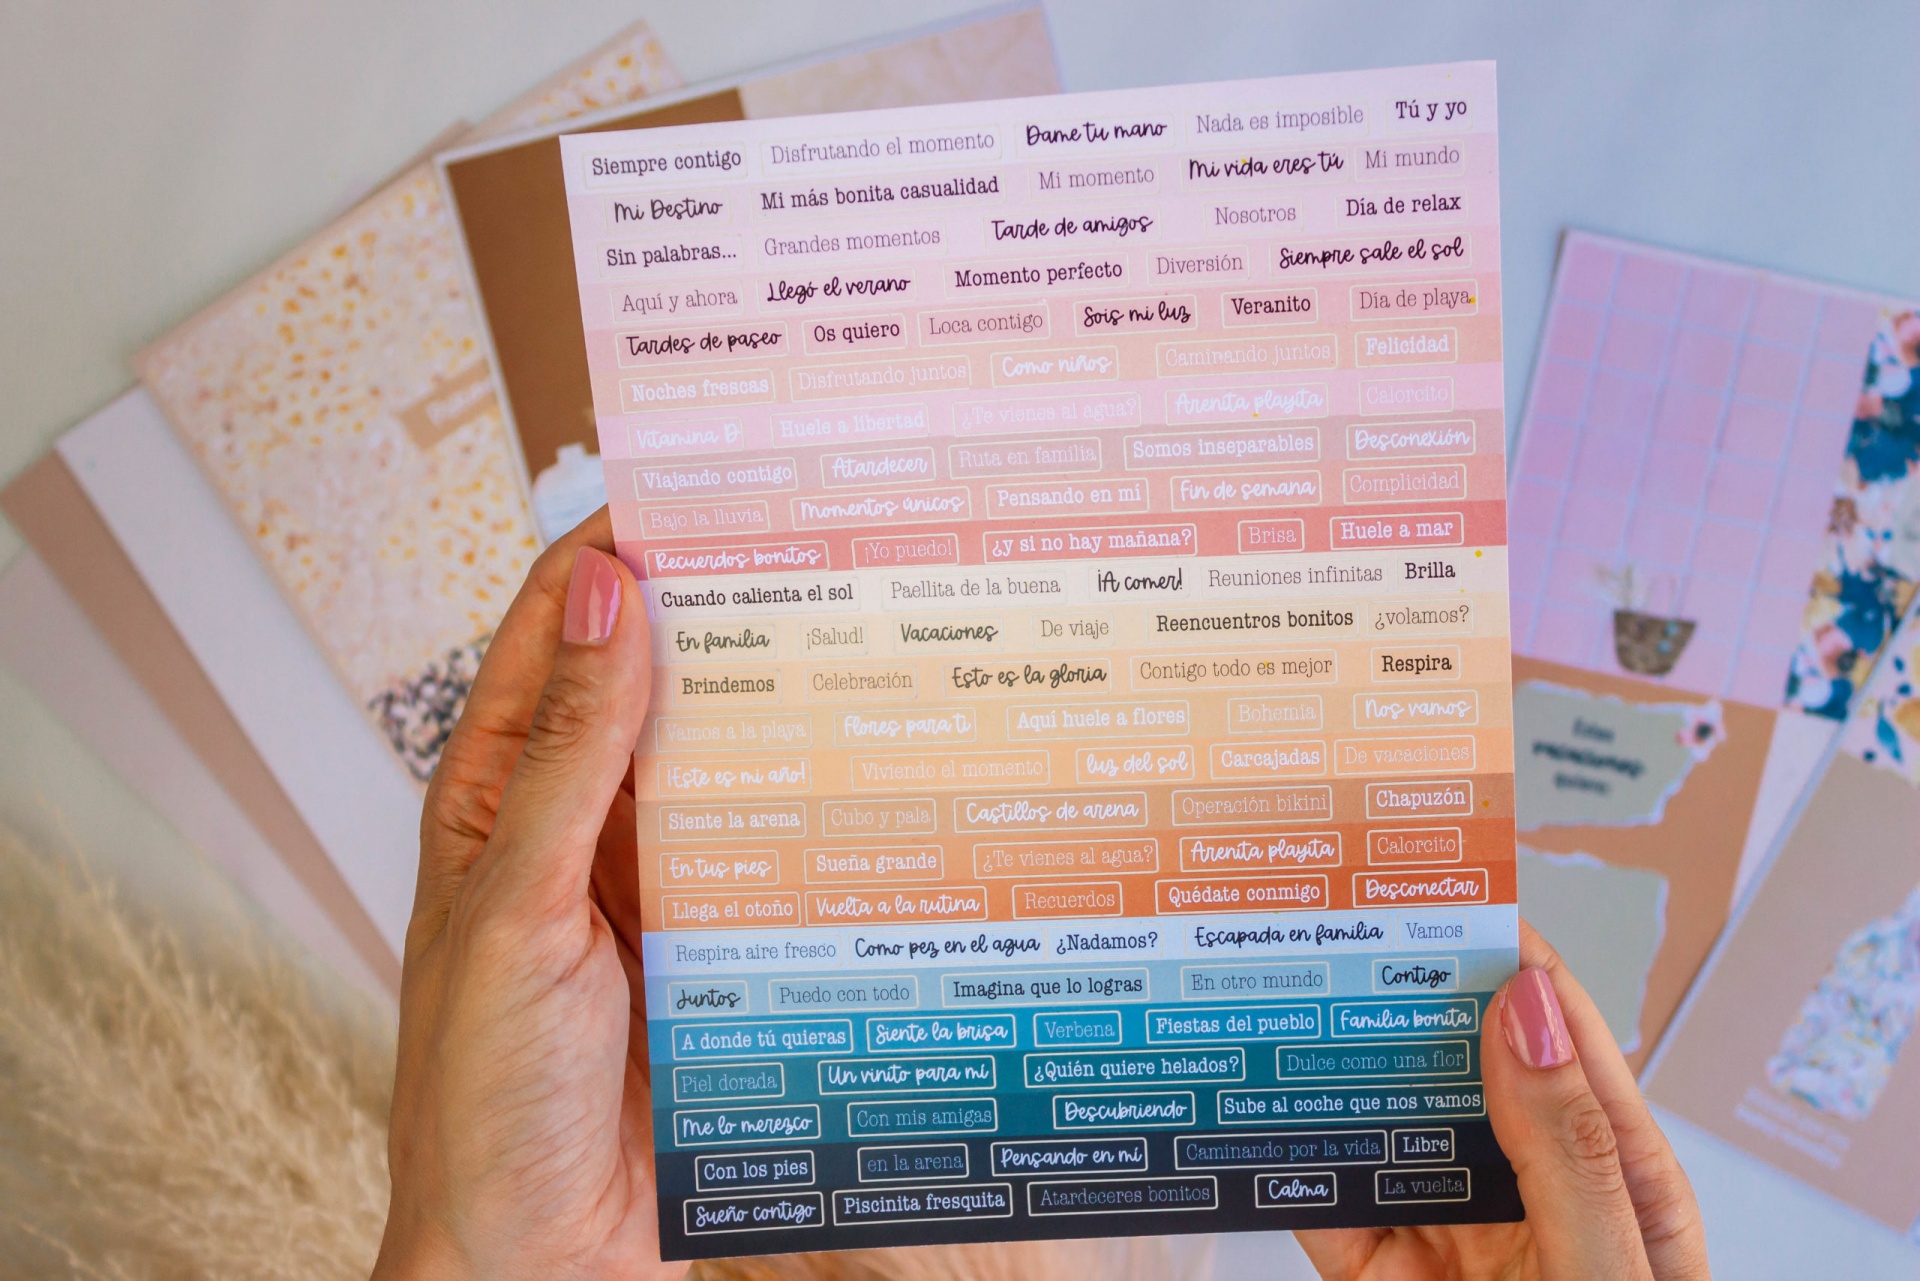 Siempre contigo Disfrutando el momento Dame tu mano Nada es imposible Tú y yo
Mi Destino Mi más bonita casualidad Mi momento Mi vida eres tú Mi mundo
Sin palabras... Grandes momentos Tarde de amigos Nosotros Día de relax
Aquí y ahora Llegó el verano Momento perfecto Diversión Siempre sale el sol
Tardes de paseo Os quiero Loca contigo Sois mi luz Veranito Día de playa
Noches frescas Disfrutando juntos Como niños Caminando juntos Felicidad
Vitamina D Huele a libertad ¿Te vienes al agua? Arenita playita Calorcito
Viajando contigo Atardecer Ruta en familia Somos inseparables Desconexión
Bajo la lluvia Momentos únicos Pensando en mí Fin de semana Complicidad
Recuerdos bonitos ¡Yo puedo! ¿y si no hay mañana? Brisa Huele a mar
Cuando calienta el sol Paellita de la buena ¡A comer! Reuniones infinitas Brilla
En familia ¡Salud! Vacaciones De viaje Reencuentros bonitos ¿volamos?
Brindemos Celebración Esto es la gloria Contigo todo es mejor Respira
Vamos a la playa Flores para ti Aquí huele a flores Bohemia Nos vamos
¡Este es mi año! Viviendo el momento luz del sol Carcajadas De vacaciones
Siente la arena Cubo y pala Castillos de arena Operación bikini Chapuzón
En tus pies Sueña grande ¿Te vienes al agua? Arenita playita Calorcito
Llega el otoño Vuelta a la rutina Recuerdos Quédate conmigo Desconectar
Respira aire fresco Como pez en el agua ¿Nadamos? Escapada en familia Vamos
Juntos Puedo con todo Imagina que lo logras En otro mundo Contigo
A donde tú quieras Siente la brisa Verbena Fiestas del pueblo Familia bonita
Piel dorada Un vinito para mí ¿Quién quiere helados? Dulce como una flor
Me lo merezco Con mis amigas Descubriendo Sube al coche que nos vamos
Con los pies en la arena Pensando en mí Caminando por la vida Libre
Sueño contigo Piscinita fresquita Atardeceres bonitos Calma La vuelta